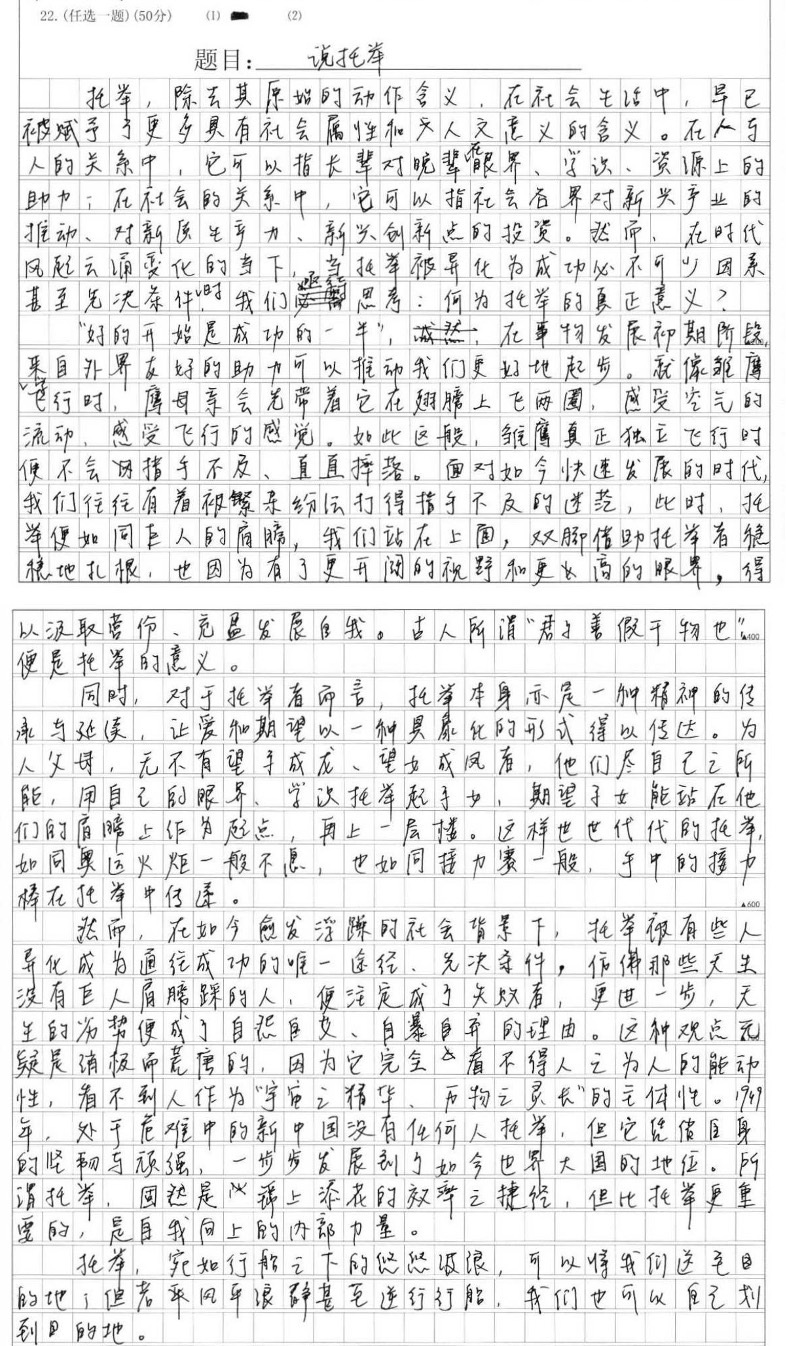 22.(任选一题)(50分) (1) (2)
题目: 说托举
托举，除去其原始的动作含义，在社会生活中，早已
被赋予了更多具有社会属性和人文意义的含义。在人与
人的关系中，它可以指长辈对晚辈在眼界、学识、资源上的
助力；在社会的关系中，它可以指社会各界对新兴产业的
推动、对新质生产力、新兴创新点的投资。然而，在时代
风起云涌变化的当下，当托举被异化为成功必不可少因素
甚至先决条件时，我们思考：何为托举的真正意义？
“好的开始是成功的一半”，在事物发展初期阶段，
来自外界友好的助力可以推动我们更好地起步。就像雏鹰
飞行时，鹰母亲会先带着它在翅膀上飞两圈，感受空气的
流动、感受飞行的感觉。如此这般，雏鹰真正独立飞行时
便不会因措手不及、直直摔落。面对如今快速发展的时代，
我们往往有着被繁杂纷纭打得措手不及的迷茫，此时，托
举便如同巨人的肩膀，我们站在上面，双脚借助托举者稳
稳地扎根，也因为有了更开阔的视野和更高的眼界，得
以汲取营份、充盈发展自我。古人所谓“君子善假于物也”，
▲400
便是托举的意义。
同时，对于托举者而言，托举本身亦是一种精神的传
承与延续，让爱和期望以一种具象化的形式得以传达。为
人父母，无不有望子成龙、望女成凤者，他们尽自己之所
能，用自己的眼界、学识托举起子女，期望子女能站在他
们的肩膀上作为起点，再上一层楼。这样世世代代的托举，
如同奥运火炬一般不息，也如同接力赛一般，手中的接力
棒在托举中传递。
▲600
然而，在如今愈发浮躁的社会背景下，托举被有些人
异化成为通往成功的唯一途径、先决条件，仿佛那些天生
没有巨人肩膀踩的人，便注定成了失败者，更进一步，天
生的劣势便成了自怨自艾、自暴自弃的理由。这种观点无
疑是消极而荒唐的，因为它完全看不得人之为人的能动
性，看不到人作为“宇宙之精华、万物之灵长”的主体性。1949
年，处于危难中的新中国没有任何人托举，但它凭借自身
的坚韧与顽强，一步步发展到了如今世界大国的地位。所
谓托举，固然是锦上添花的效率之捷径，但比托举更重
要的，是自我向上的内部力量。
托举，宛如行船之下的悠悠波浪，可以将我们送至目
的地；但若乘风平浪静甚至逆行行船，我们也可以自己划
到目的地。